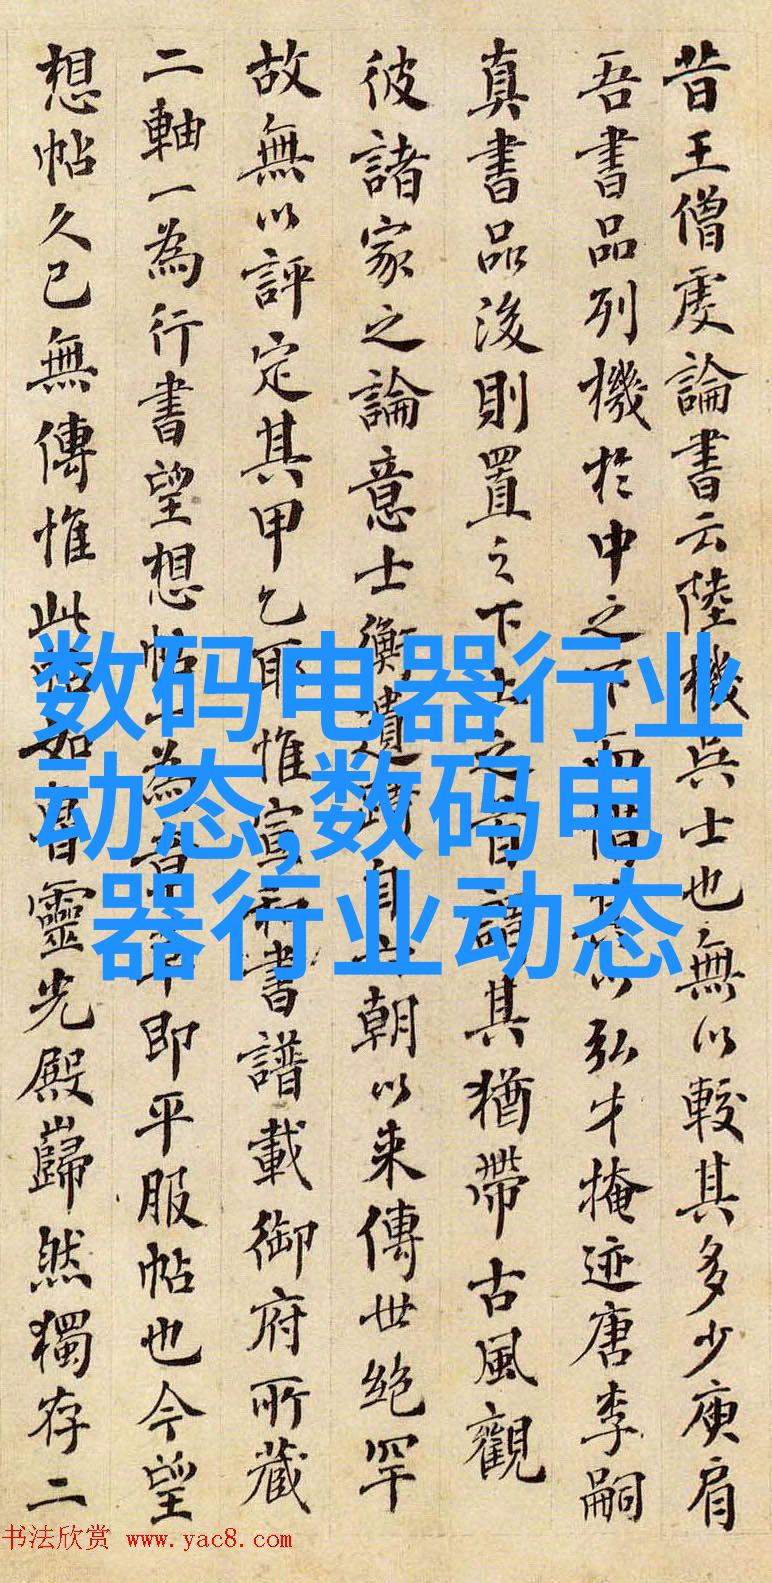 昔王僧虔論書云陸機吳士也無以較其多少庾肩
吾書品列機於中之下而惜其以弘才掩迹唐李嗣
真書品後則置之下上之首謂其猶帶古風觀
彼諸家之論意士衡遺蹟自六朝以来傳世絶罕
故無以評定其甲乙耳惟宣和書譜載御府所藏
二軸一為行書望想帖一為章草即平服帖也今望
想帖久已無傳惟此帖如魯靈光殿巋然獨存二
数码电器行业
动态,数码电
器行业动态
书法欣赏 www.yac8.com